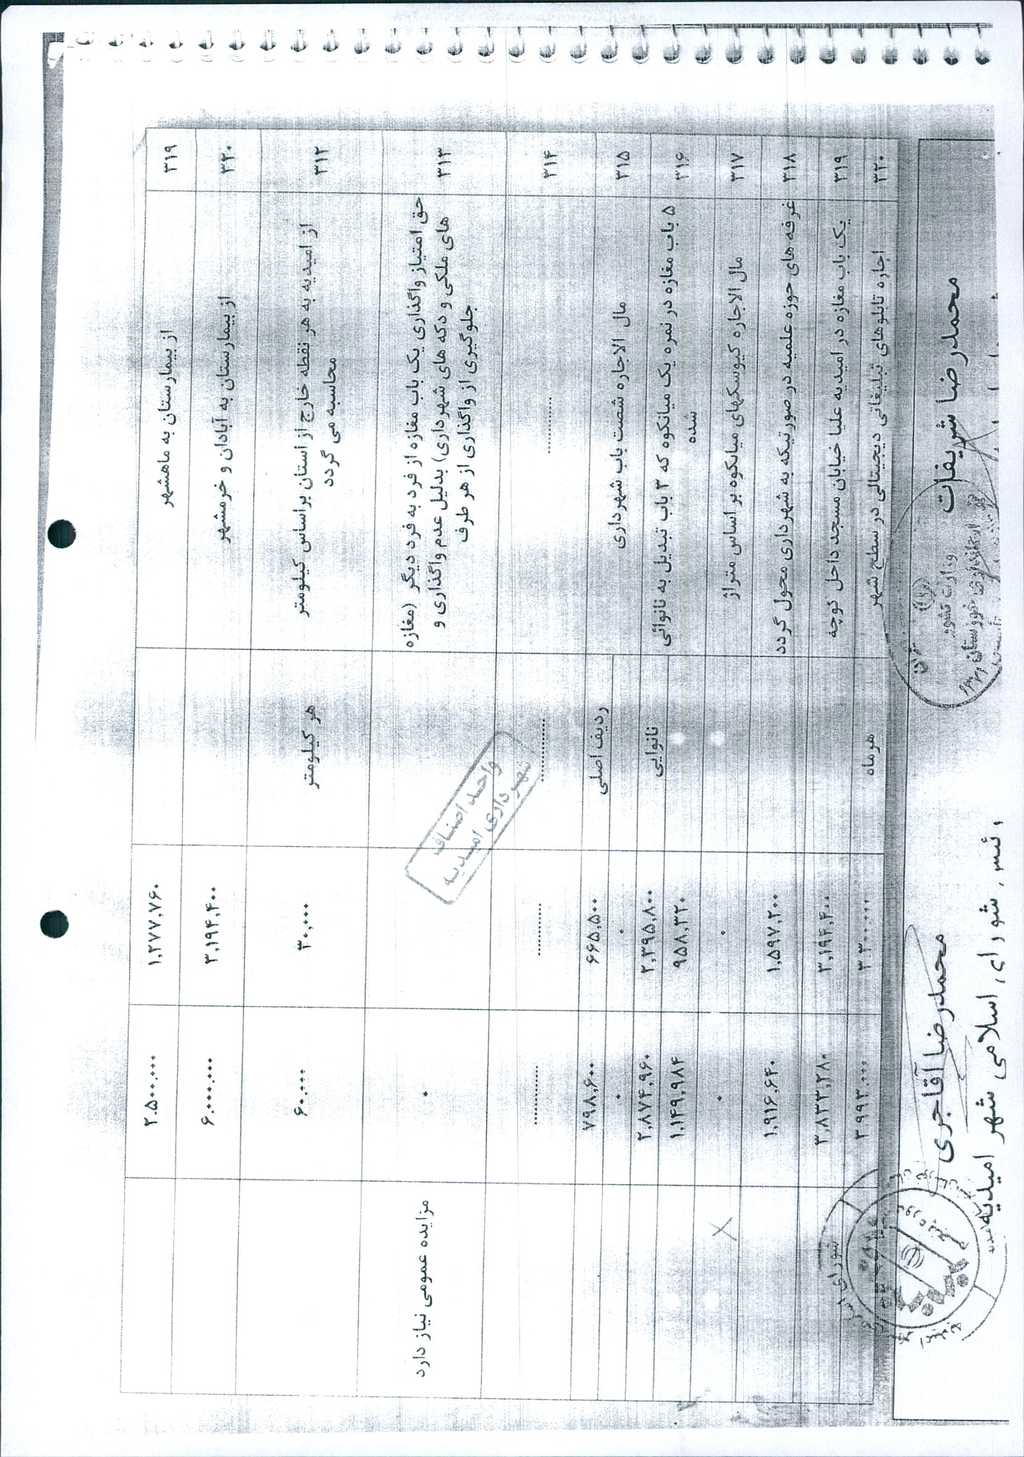 ۳۱۹ از بیمارستان به ماهشهر ۱,۲۷۷,۷۶۰ ۲,۵۰۰,۰۰۰
۳۲۰ از بیمارستان به آبادان و خرمشهر ۳,۱۹۴,۴۰۰ ۶,۰۰۰,۰۰۰
۳۱۲ از امیدیه به هر نقطه خارج از استان براساس کیلومتر هر کیلومتر ۳۰,۰۰۰ ۶۰,۰۰۰
محاسبه می گردد
۳۱۳ حق امتیاز واگذاری یک باب مغازه از فرد به فرد دیگر (مغازه ۰ مزایده عمومی نیاز دارد
های ملکی و دکه های شهرداری) بدلیل عدم واگذاری و
جلوگیری از واگذاری از هر طرف
۳۱۴ ............ ............ ............ ............
۳۱۵ مال الاجاره شصت باب شهرداری ردیف اصلی ۶۶۵,۵۰۰ ۷۹۸,۶۰۰
۰ ۰
۳۱۶ ۵ باب مغازه در نمره یک میانکوه که ۳ باب تبدیل به نانوائی نانوایی ۲,۳۹۵,۸۰۰ ۲,۸۷۴,۹۶۰
شده ۹۵۸,۳۲۰ ۱,۱۴۹,۹۸۴
۳۱۷ مال الاجاره کیوسکهای میانکوه بر اساس متراژ ۰ ۰
۳۱۸ غرفه های حوزه علمیه در صورتیکه به شهرداری محول گردد ۱,۵۹۷,۲۰۰ ۱,۹۱۶,۶۴۰
۳۱۹ یک باب مغازه در امیدیه علیا خیابان مسجد داخل کوچه ۳,۱۹۴,۴۰۰ ۳,۸۳۳,۲۸۰
۳۲۰ اجاره تابلوهای تبلیغاتی دیجیتالی در سطح شهر هرماه
واحد اصناف
شهرداری امیدیه
محمدرضا شریفات
وزارت کشور
استانداری خوزستان
محمدرضا آقاجری
رئیس شورای اسلامی شهر امیدیه